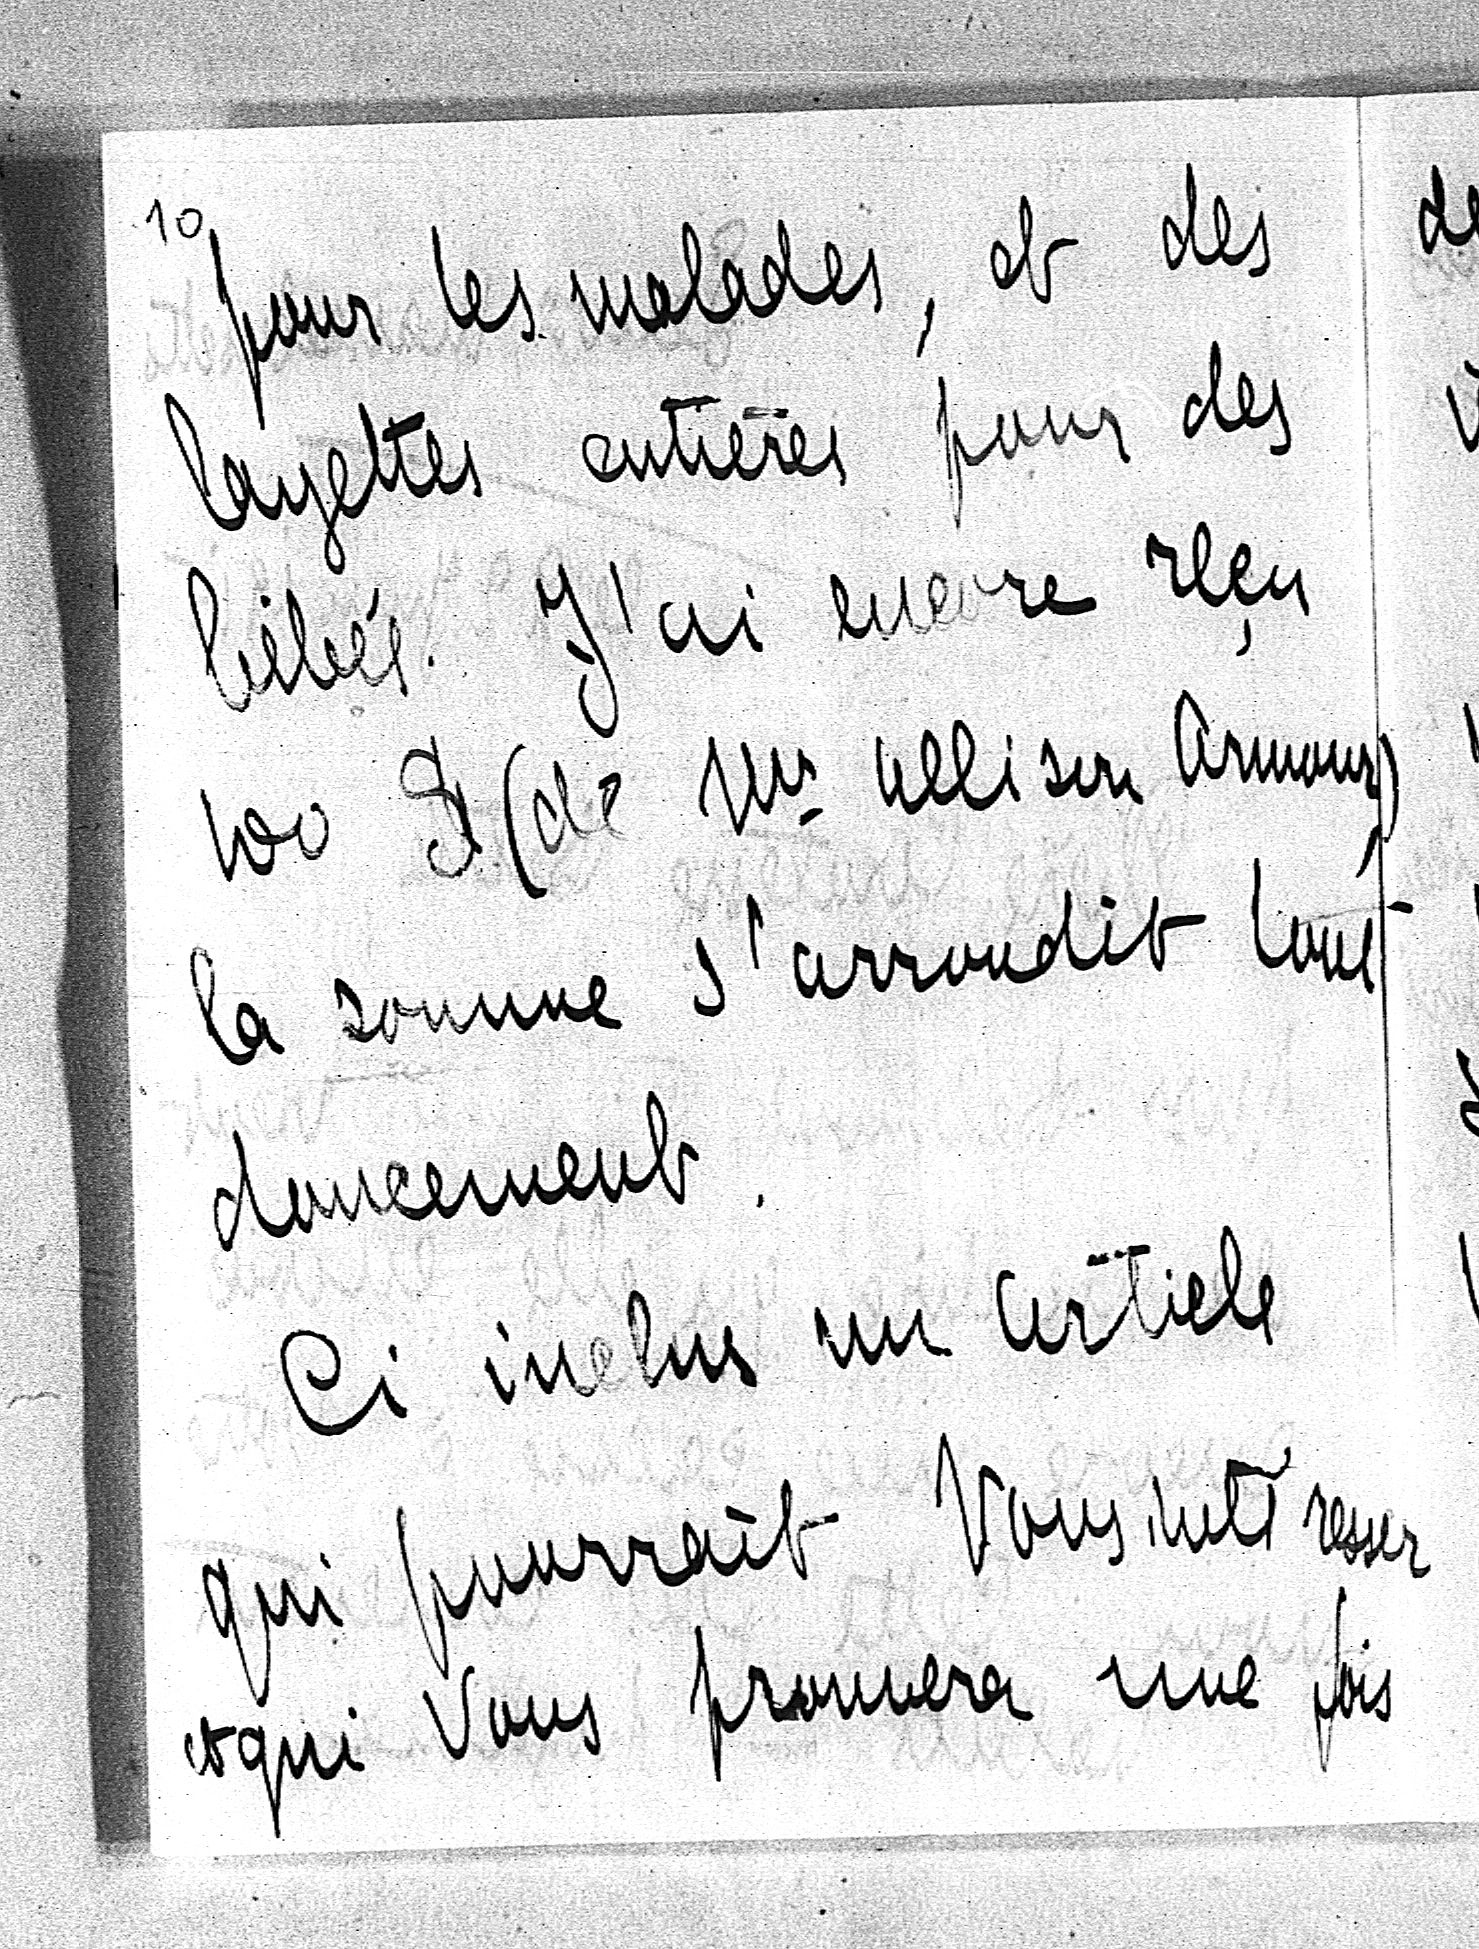 10
pour les malades, et des
layettes entières pour des
bébés. J'ai encore reçu
100 $ (de Mr Allison Armour)
la somme s'arrondit tout
doucement.
Ci inclus un article
qui pourrait Vous intéresser
et qui Vous prouvera une fois